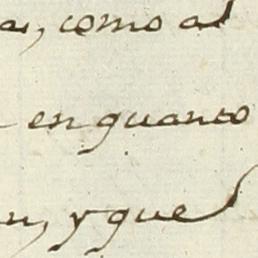 a, como al
en quanto
n, y que